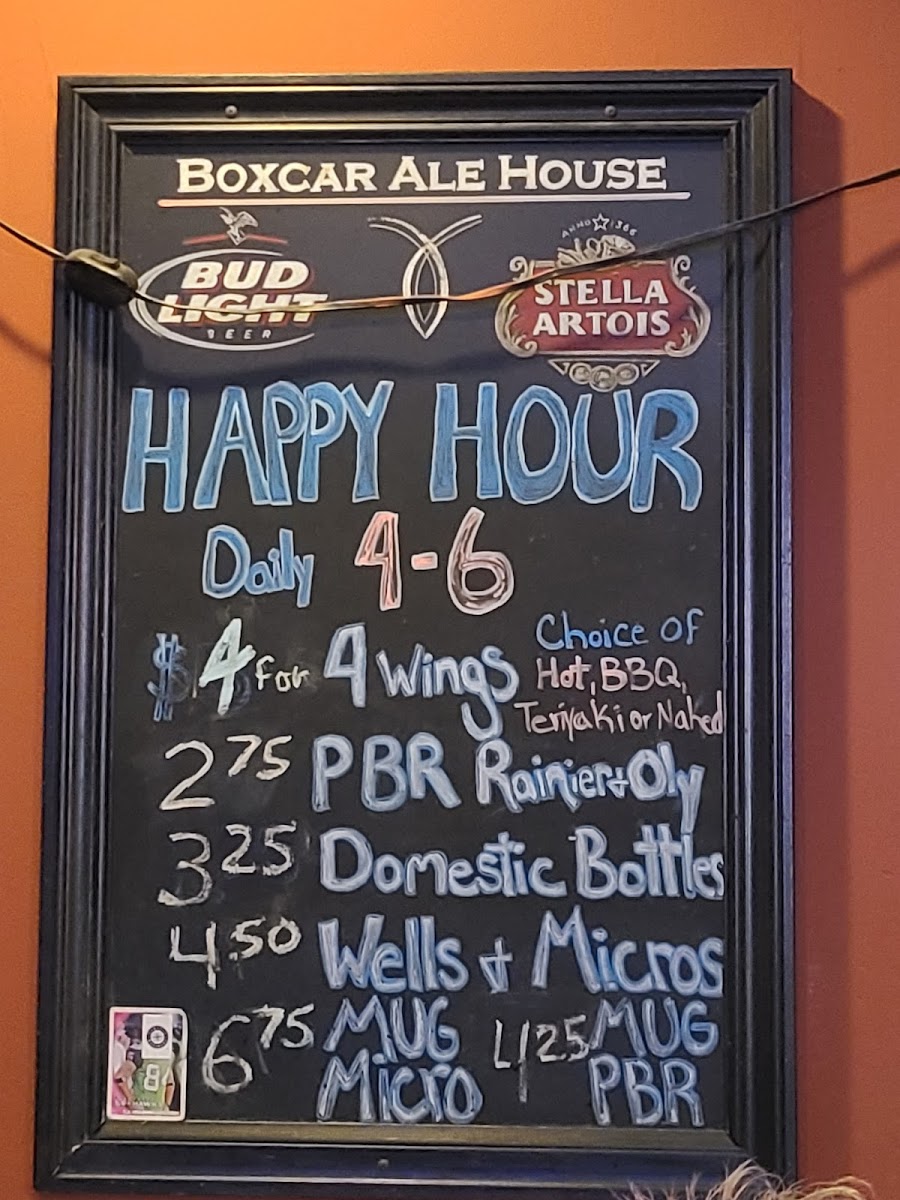 BOXCAR ALE HOUSE
BUD
LIGHT
BEER
ANNO 1366
STELLA
ARTOIS
HAPPY HOUR
Daily 4-6
$4 for 4 Wings
Choice of
Hot, BBQ,
Teriyaki or Naked
2 75 PBR Rainier + Oly
3 25 Domestic Bottles
4.50 Wells + Micros
6 75 MUG
Micro
4 25 MUG
PBR
8